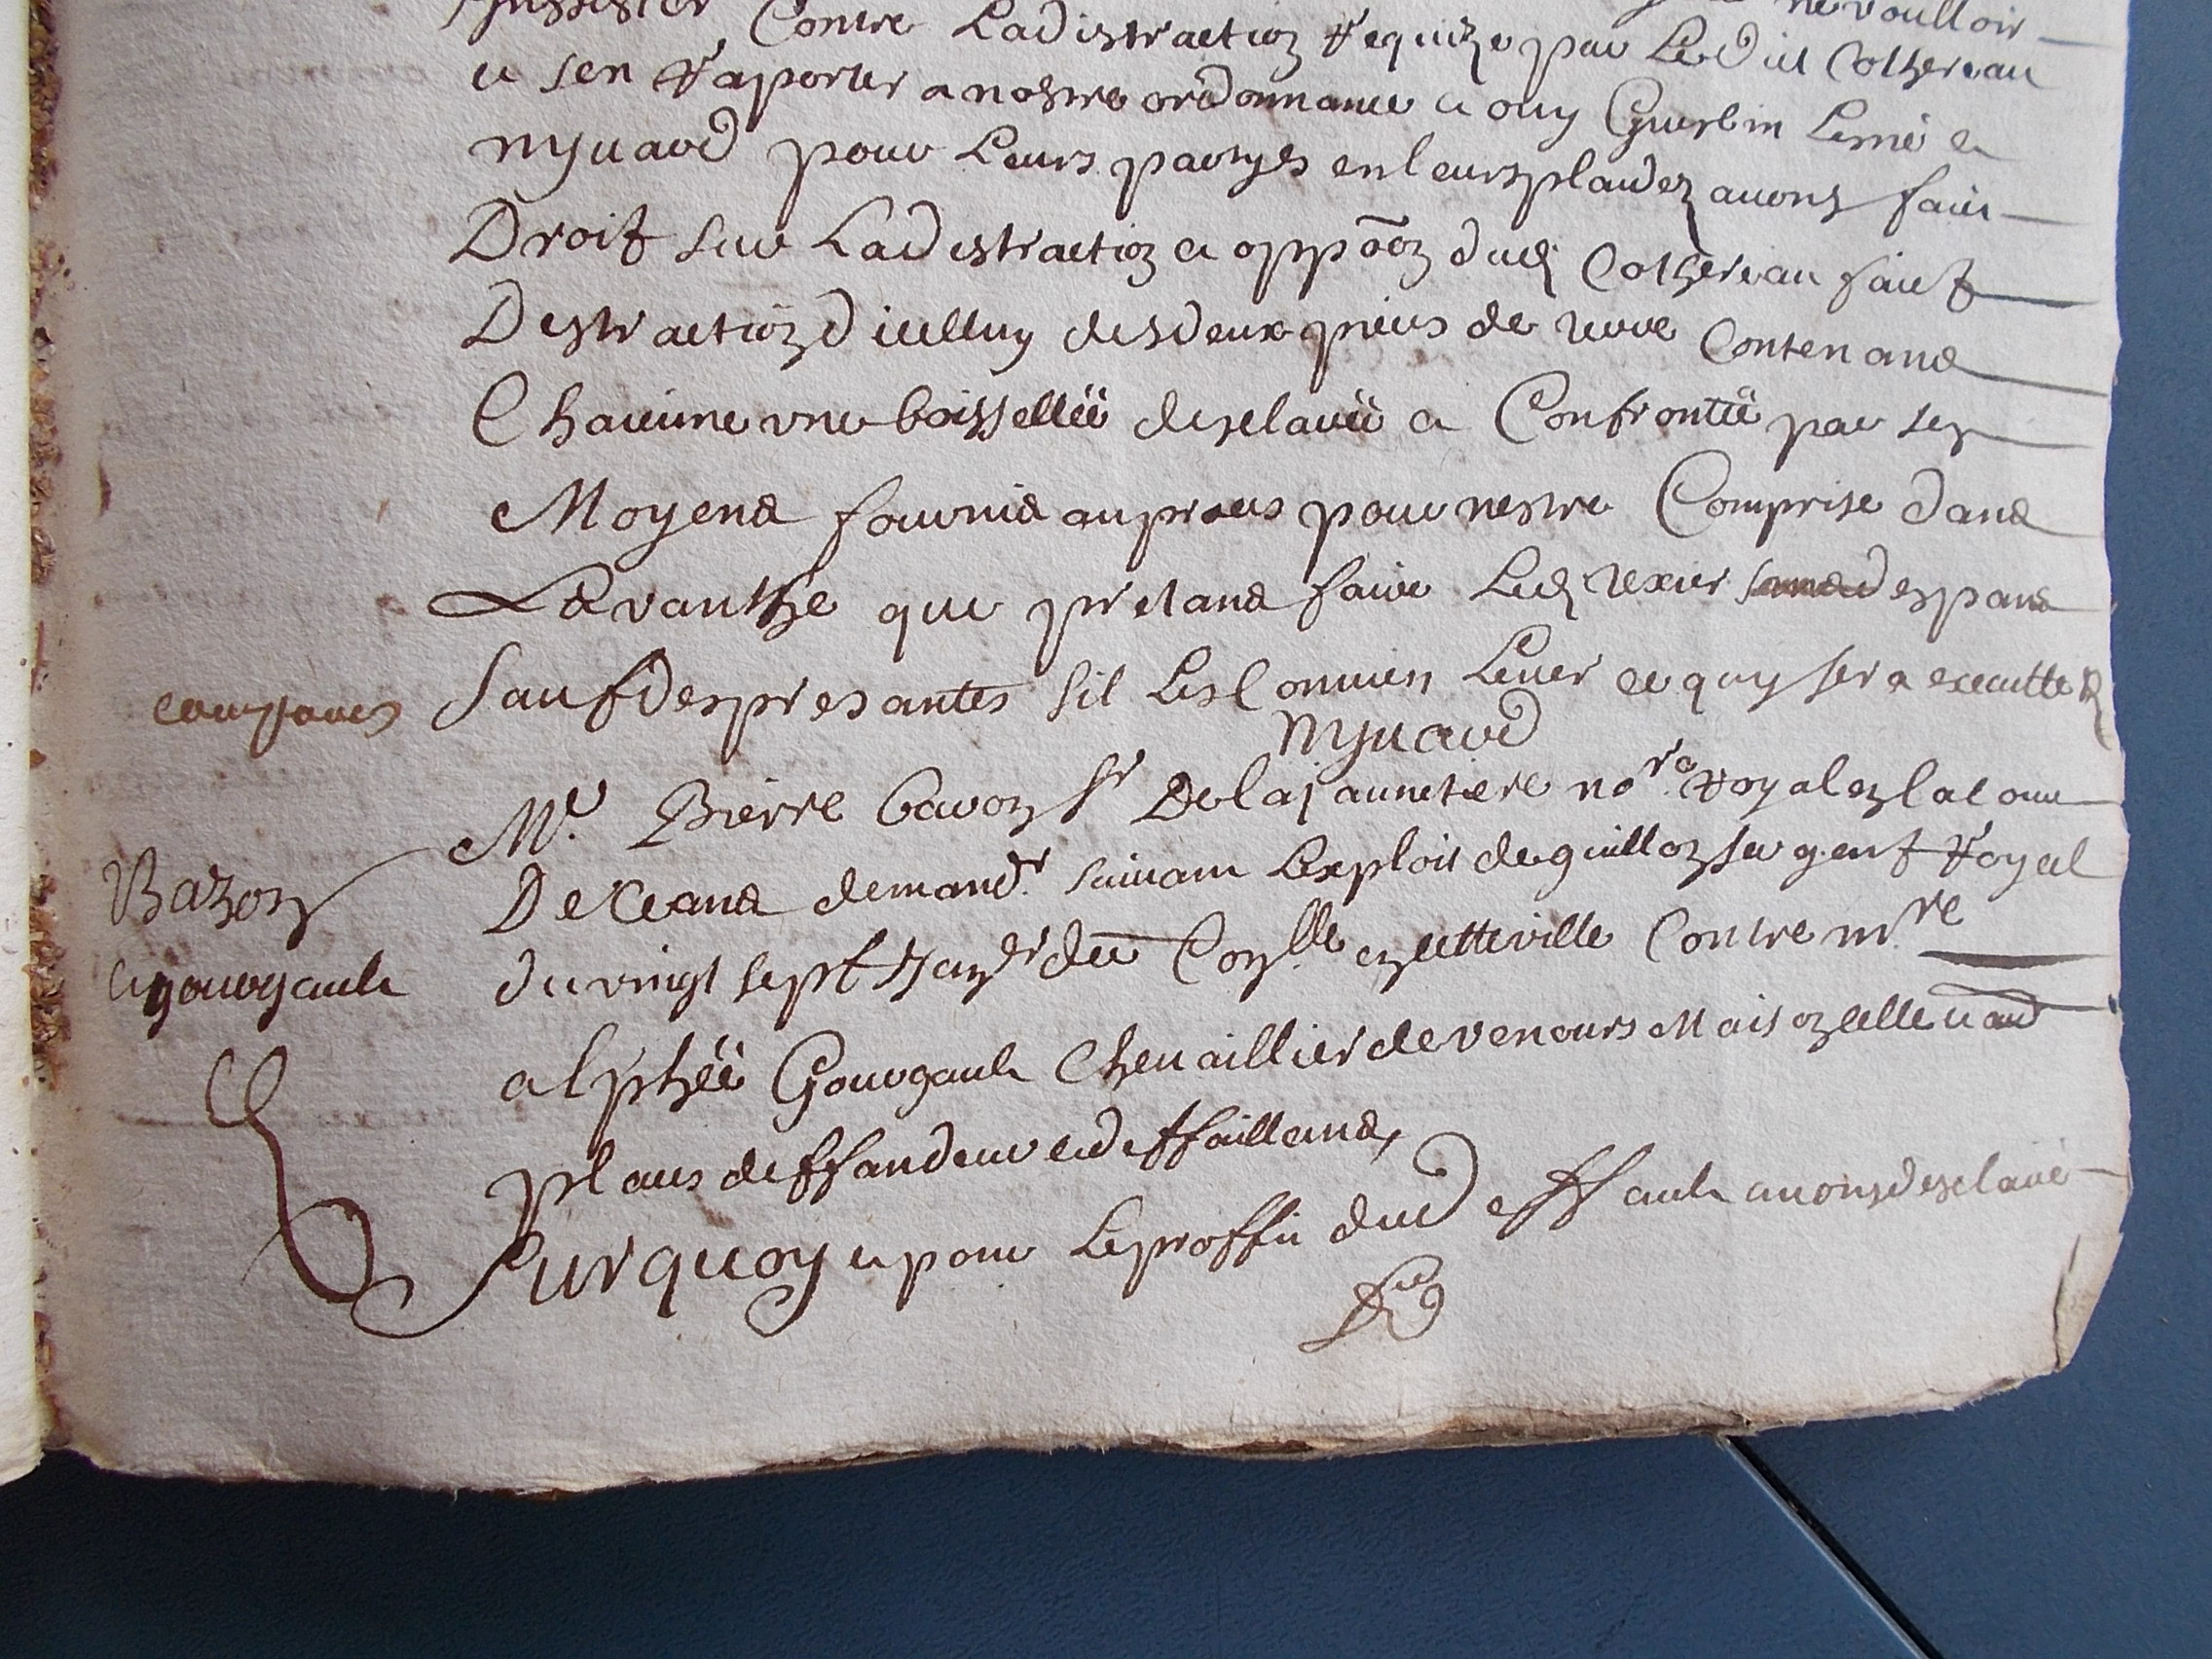 ne voulloir
Contre La distraction requize par Ledict Cothereau
et sen raporter a nostre ordonnance et ouy Guerbin Lerné et
mynard pour Leurs partyes en leurs plaidez avons faict
Droit sur La distraction et oppōon dud Cothereau faict
Destraction dicelluy des deux pieces de terre Contenand
Chacune une boissellëe desclarëe et Confrontëe par ses
Moyend fournid au proces pour nestre Comprise dand
La vanthe que pretand faire Led texier sans despand
Sauf des presantes sil Les Convien Lever ce quy sera executté &
mynard
compares
Me. Pierre bazon sr De la jaunetiere nore. royal en la cour
De Ceand demandr. suivant Lexploit de guillon sergent royal
du vingt sept Janer du Conlle en cette ville Contre mre
alphëe Gourgault Chevaillier de venours Maison celle nand
plaus deffandeur et deffailland,
Surquoy et pour Le proffit dud deffault avons desclaré
Bazon
et gourgault